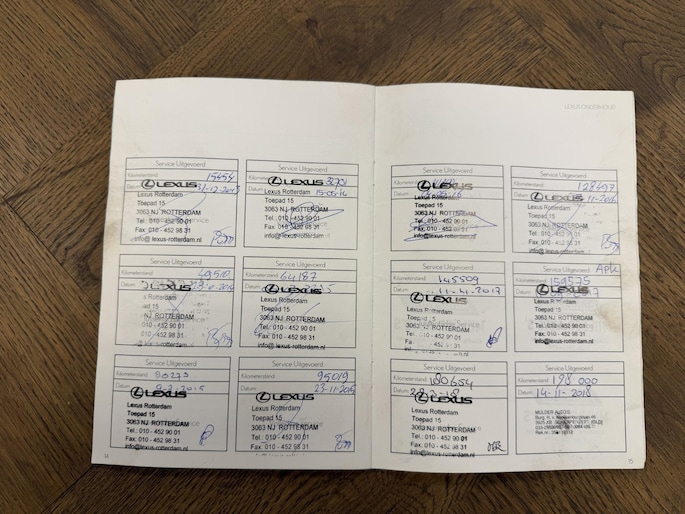 LEXUS ONDERHOUD
Service Uitgevoerd
Kilometerstand 15454
Datum LEXUS
Lexus Rotterdam
Toepad 15
3063 NJ ROTTERDAM
Tel.: 010 - 452 90 01
Fax: 010 - 452 98 31
info@lexus-rotterdam.nl
Service Uitgevoerd
LEXUS
Lexus Rotterdam
Toepad 15
3063 NJ ROTTERDAM
Tel.: 010 - 452 90 01
Fax: 010 - 452 98 31
info@lexus-rotterdam.nl
Service Uitgevoerd
Kilometerstand
s Rotterdam
pad 15
3063 NJ ROTTERDAM
010 - 452 90 01
010 - 452 98 31
@lexus-rotterdam.nl
Service Uitgevoerd
Kilometerstand 64187
LEXUS
Lexus Rotterdam
Toepad 15
3063 NJ ROTTERDAM
Tel.: 010 - 452 90 01
Fax: 010 - 452 98 31
info@lexus-rotterdam.nl
Service Uitgevoerd
Kilometerstand 80273
Datum
LEXUS
Lexus Rotterdam
Toepad 15
3063 NJ ROTTERDAM
Tel.: 010 - 452 90 01
Fax: 010 - 452 98 31
info@lexus-rotterdam.nl
Service Uitgevoerd
Kilometerstand 95019
Datum 23-11-2015
LEXUS
Lexus Rotterdam
Toepad 15
3063 NJ ROTTERDAM
Tel.: 010 - 452 90 01
Fax: 010 - 452 98 31
info@lexus-rotterdam.nl
14
Service Uitgevoerd
LEXUS
Lexus Rotterdam
Toepad 15
3063 NJ ROTTERDAM
Tel.: 010 - 452 90 01
Fax: 010 - 452 98 31
info@lexus-rotterdam.nl
Service Uitgevoerd
Kilometerstand 128497
LEXUS
Lexus Rotterdam
Toepad 15
3063 NJ ROTTERDAM
Tel.: 010 - 452 90 01
Fax: 010 - 452 98 31
info@lexus-rotterdam.nl
Service Uitgevoerd
Kilometerstand 145509
Datum
LEXUS
3063 NJ ROTTERDAM
010 - 452 90 01
010 - 452 98 31
info@lexus-rotterdam.nl
Service Uitgevoerd APK
Kilometerstand 159575
LEXUS
Lexus Rotterdam
Toepad 15
3063 NJ ROTTERDAM
Tel.: 010 - 452 90 01
Fax: 010 - 452 98 31
info@lexus-rotterdam.nl
Service Uitgevoerd
Kilometerstand 180654
Datum
LEXUS
Lexus Rotterdam
Toepad 15
3063 NJ ROTTERDAM
Tel.: 010 - 452 90 01
Fax: 010 - 452 98 31
info@lexus-rotterdam.nl
Service Uitgevoerd
Kilometerstand 198 000
Datum 14-11-2018
MULDER
15